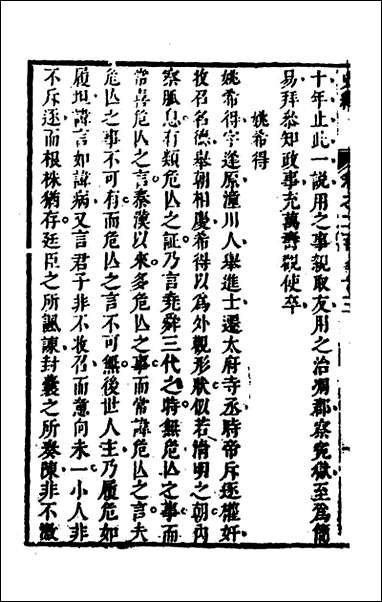 十年止此一說用之事親取友用之治濶郡察寃獄至爲簡
易拜叅知政事充萬壽觀使卒
姚希得
姚希得字逢原潼川人舉進士遷太府寺丞時帝斥逐權奸
收召名德舉朝相慶希得以爲外觀形狀似若清明之朝內
察脈息有類危亾之証乃言堯舜三代之時無危亾之事而
常喜危亾之言秦漢以來多危亾之事而常諱危亾之言夫
危亾之事不可有而危亾之言不可無後世人主乃履危如
履坦諱言如諱病又言君子非不收召而意向未一小人非
不斥逐而根株猶存廷臣之所諷諫封囊之所奏陳非不激